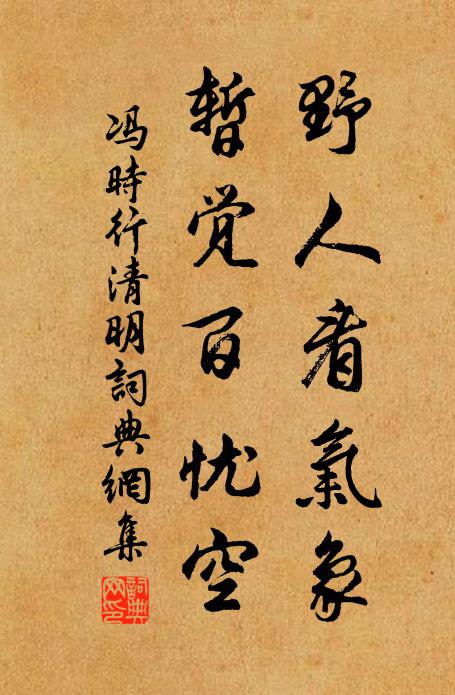 野人看氣象
暫覺百忧空
冯時行清明詞典網集
詞典
网印